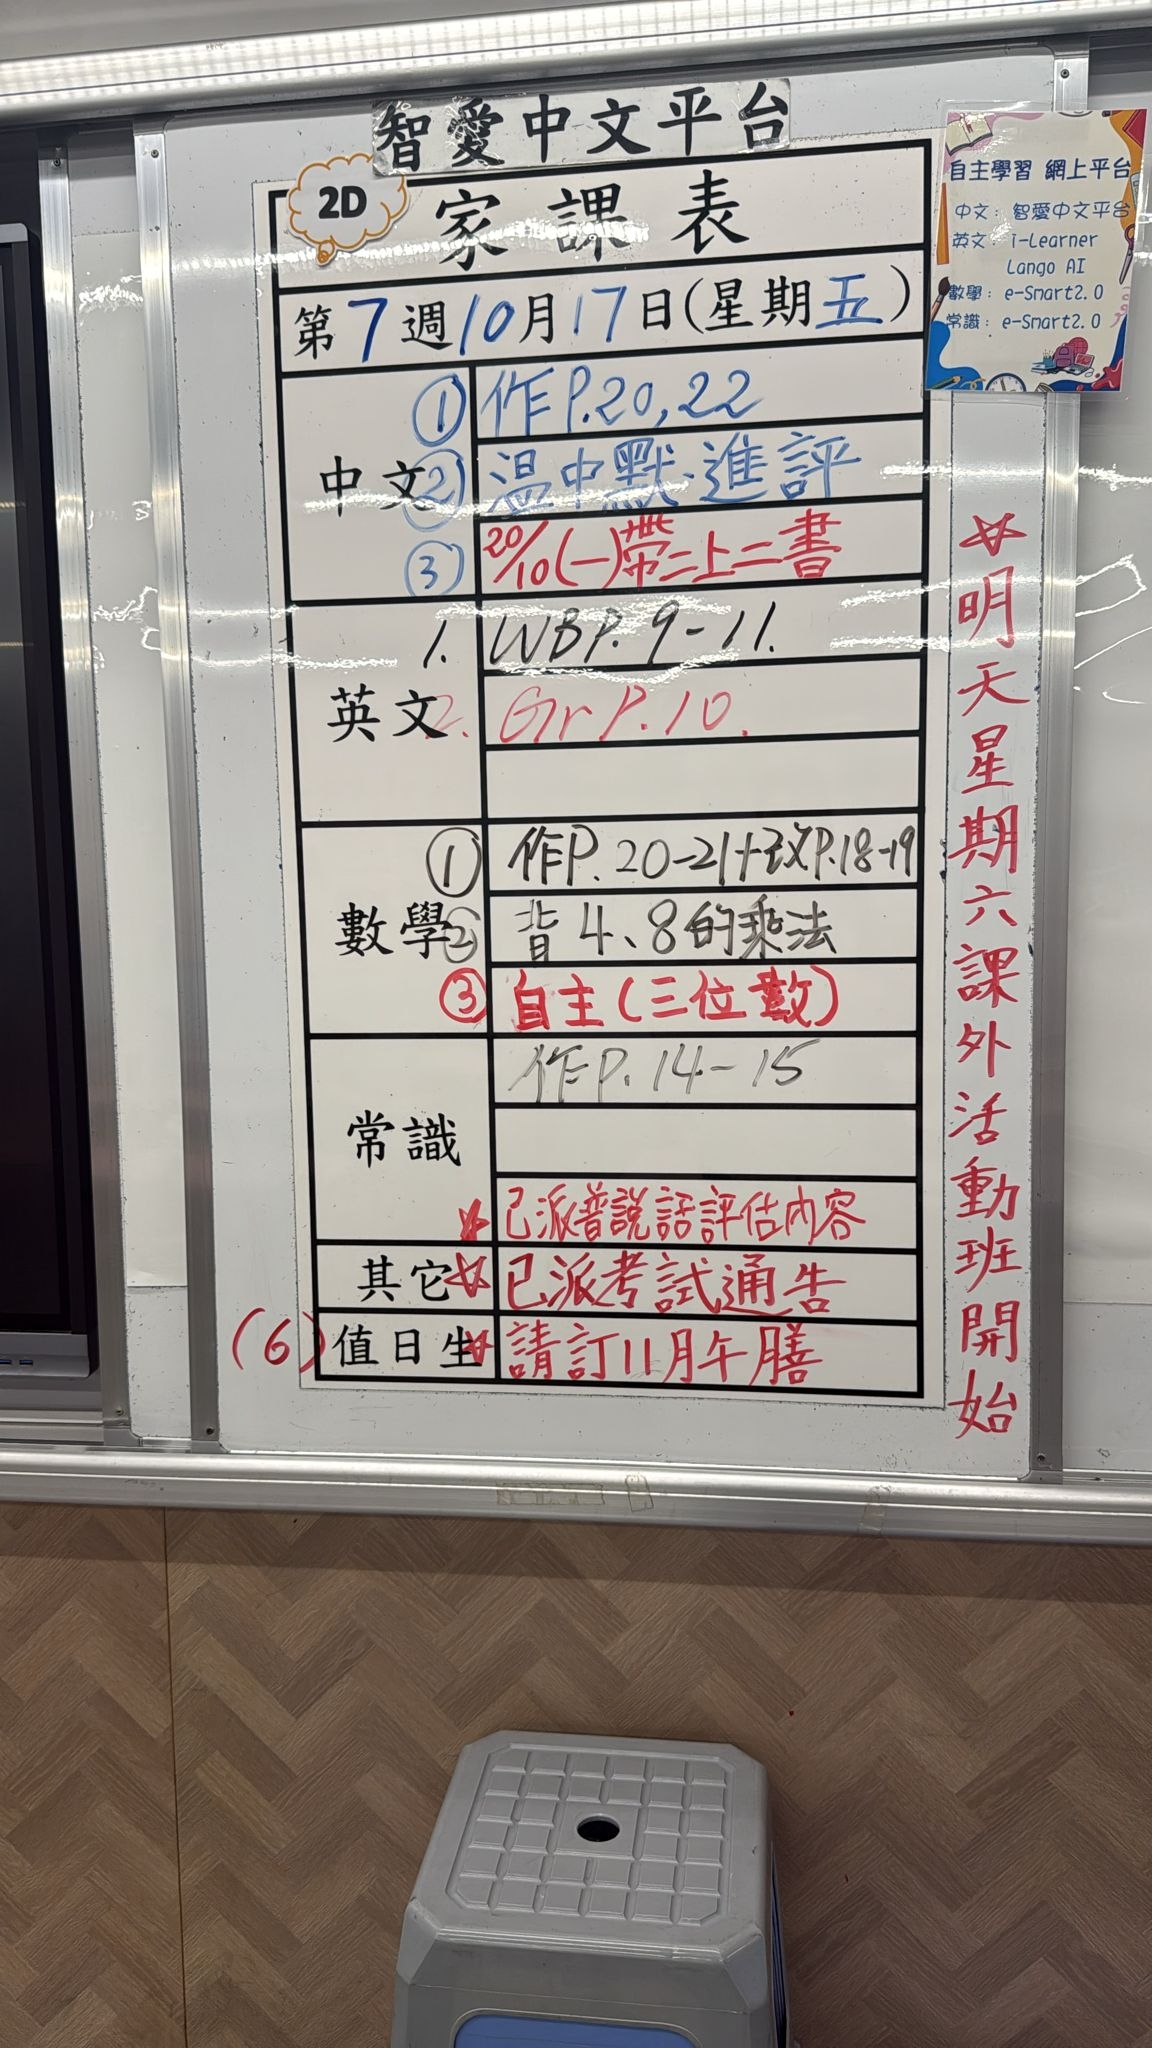 智愛中文平台
2D
家課表
第7週10月17日(星期五)
中文
① 作P.20,22
② 温中默.進評
③ 20/10(一)帶二上二書
英文
1. WBP.9-11.
2. Gr P.10.
數學
① 作P.20-21+改P.18-19
② 背4、8的乘法
③ 自主(三位數)
常識
作P.14-15
已派普説話評估內容
其它
已派考試通告
(6)
值日生
請訂11月午膳
明天星期六課外活動班開始
自主學習 網上平台
中文: 智愛中文平台
英文: i-Learner
Lango AI
數學: e-Smart2.0
常識: e-Smart2.0